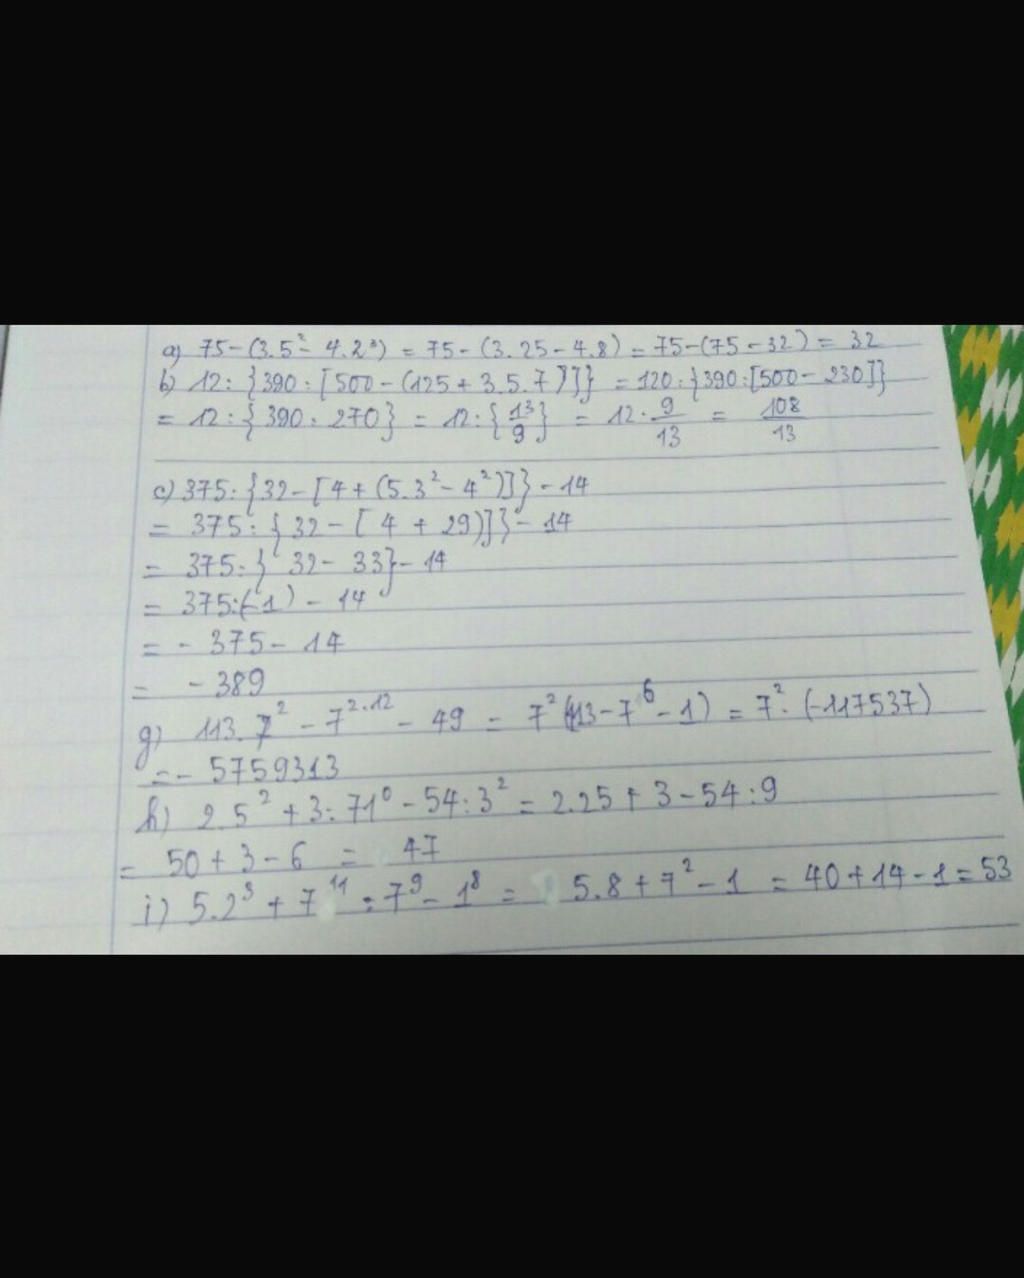 a) 75-(3.5²-4.2³) = 75-(3.25-4.8) = 75-(75-32) = 32
b) 12:{390:[500-(125+3.5.7)]} = 120:{390:[500-230]}
= 12:{390:270} = 12:{13/9} = 12.9/13 = 108/13
c) 375:{32-[4+(5.3²-4²)]}-14
= 375:{32-[4+29)]}-14
= 375:{32-33}-14
= 375:(-1)-14
= -375-14
= -389
g) 113.7²-7^2.12-49 = 7²(113-7⁶-1) = 7².(-117537)
=-5759313
h) 2.5²+3:71⁰-54:3² = 2.25+3-54:9
= 50+3-6 = 47
i) 5.2³+7¹¹:7⁹-1⁸ = 5.8+7²-1 = 40+14-1=53